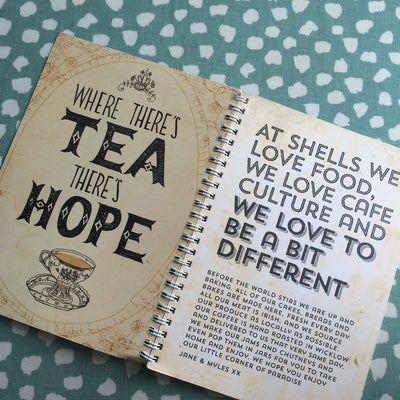 WHERE THERE'S
TEA
THERE'S
HOPE
AT SHELLS WE
LOVE FOOD,
WE LOVE CAFE
CULTURE AND
WE LOVE TO
BE A BIT
DIFFERENT
BEFORE THE WORLD STIRS WE ARE UP AND
BAKING. ALL OF OUR CAKES, BREADS AND
BAKES ARE MADE HERE FRESH EVERY DAY.
ALL OUR MEAT IS IRISH, AND WE SOURCE
OUR PRODUCE AS LOCALLY AS POSSIBLE.
OUR COFFEE IS HAND ROASTED IN WICKLOW
AND DELIVERED TO US THAT VERY SAME DAY.
WE MAKE OUR JAMS AND CHUTNEYS AND
EVEN POP THEM IN JARS FOR YOU TO TAKE
HOME AND ENJOY. WE HOPE YOU ENJOY
OUR LITTLE CORNER OF PARADISE
JANE & MYLES XX